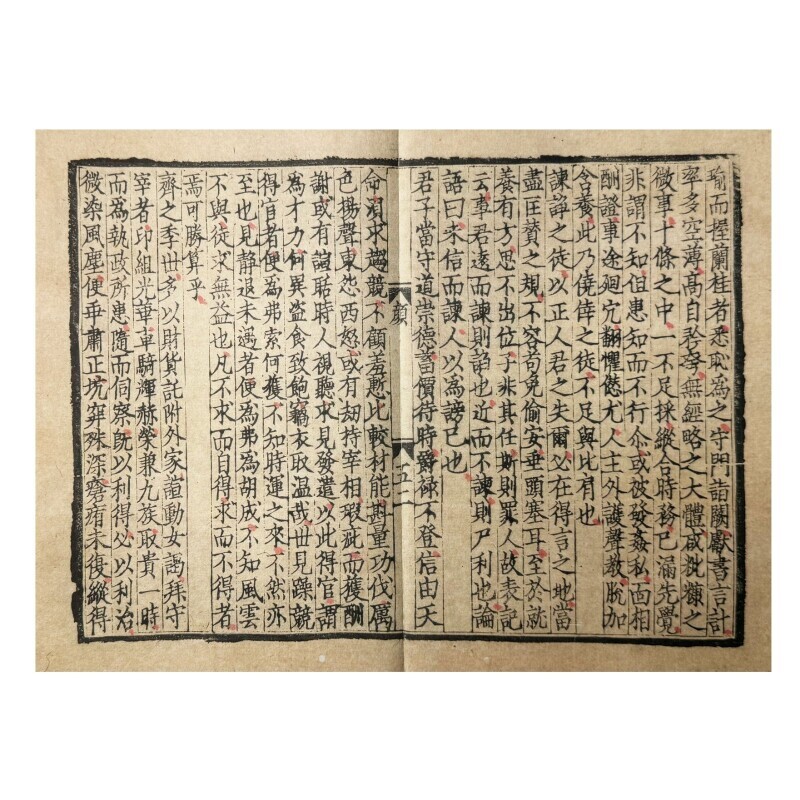 瑜而握蘭桂者悉恥為之守門詣闕獻書言計
率多空薄高自矜夸無經略之大體咸粃糠之
微事十條之中一不足採縱合時務已漏先覺
非謂不知但患知而不行尒或被發姦私面相
酬證事途迴宂翻懼愆尤人主外護聲教脫加
含養此乃僥倖之徒不足與比肩也
諫諍之徒以正人君之失爾必在得言之地當
盡匡贊之規不容苟免偷安垂頭塞耳至於就
養有方思不出位干非其任斯則罪人故表記
云事君遠而諫則諂也近而不諫則尸利也論
語曰未信而諫人以為謗己也
君子當守道崇德蓄價待時爵祿不登信由天
顏 五一
命須求趨競不顧羞慙比較材能斟量功伐厲
色揚聲東怨西怒或有劫持宰相瑕疵而獲酬
謝或有諠聒時人視聽求見發遣以此得官謂
為才力何異盜食致飽竊衣取温哉世見躁競
得官者便為弗索何獲不知時運之來不然亦
至也見靜退未遇者便為弗為胡成不知風雲
不與徒求無益也凡不求而自得求而不得者
焉可勝算乎
齊之季世多以財貨託附外家諠動女謁拜守
宰者印組光華車騎輝赫榮兼九族取貴一時
而為執政所患隨而伺察既以利得必以利治
微染風塵便乖肅正坑穽殊深瘡痏未復縱得